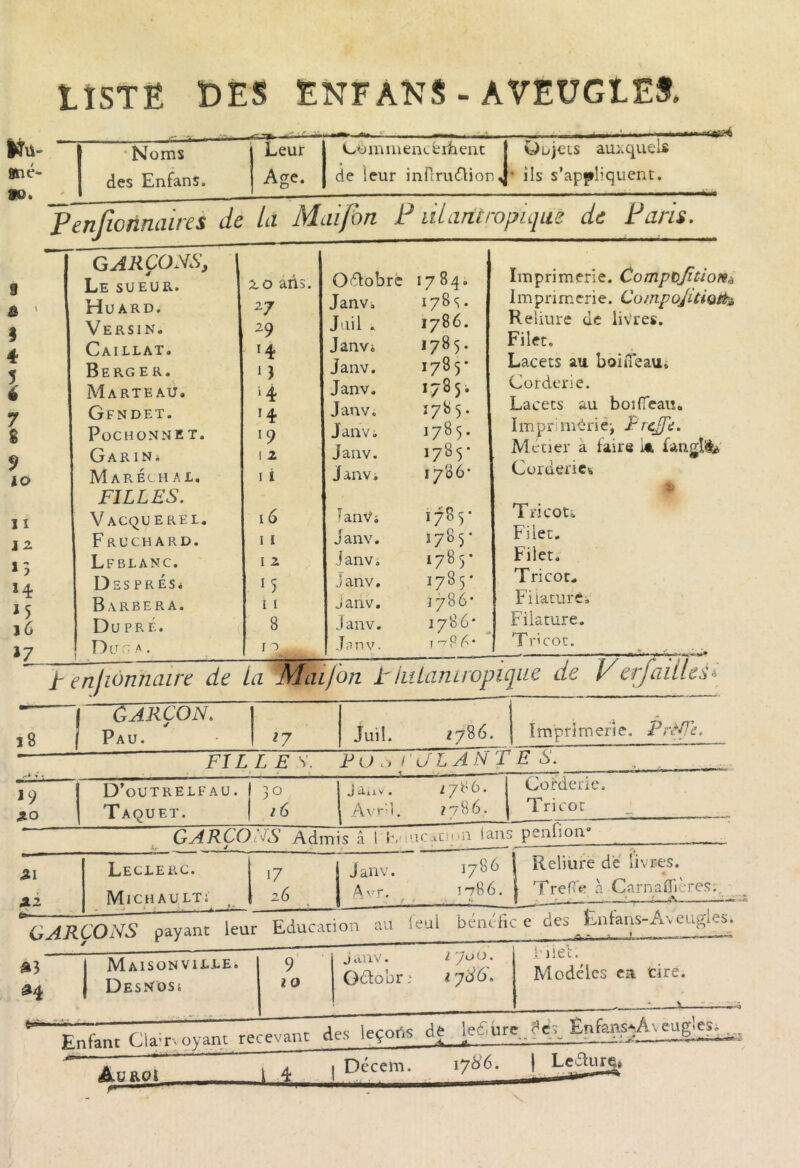 LISTE DES ENFANS-AVEUGLES.
Nu-méro. Noms des Enfans. Leur Age. Commencement de leur inſtruction. Objets auxquels ils s'appliquent.
Penſionnaires de la Maiſon Philantropique de Paris.
GARÇONS,
1 LE SUEUR. 20 ans. Octobre 1784. Imprimerie. Compoſition.
2 HUARD. 27 Janv. 1785. Imprimerie. Compoſition.
3 VERSIN. 29 Juil. 1786. Reliure de livres.
4 CAILLAT. 14 Janv. 1785. Filet.
5 BERGER. 13 Janv. 1785. Lacets au boiſſeau.
6 MARTEAU. 14 Janv. 1785. Corderie.
7 GENDET. 14 Janv. 1785. Lacets au boiſſeau.
8 POCHONNET. 19 Janv. 1785. Imprimérie, Preſſe.
9 GARIN. 12 Janv. 1785. Métier à faire la ſangle.
10 MARÉCHAL. 11 Janv. 1786. Corderie.
FILLES.
11 VACQUEREL. 16 Janv. 1785. Tricot.
12 FRUCHARD. 11 Janv. 1785. Filet.
13 LEBLANC. 12 Janv. 1785. Filet.
14 DESPRÉS. 15 Janv. 1785. Tricot.
15 BARBERA. 11 Janv. 1786. Filature.
16 DUPRÉ. 8 Janv. 1786. Filature.
17 Janv. 1786. Tricot.
Penſionnaire de la Maiſon Philantropique de Verſailles.
GARÇON.
18 PAU. 27 Juil. 1786. Imprimerie. Preſſe.
FILLES. POSTULANTES.
19 D'OUTRELEAU. 30 Janv. 1786. Corderie.
20 TAQUET. 16 Avril. 1786. Tricot
GARÇONS Admis à l'Education ſans penſion.
21 LECLERC. 17 Janv. 1786 Reliure de livres.
22 MICHAULT. 26 Avr. 1786. Treſſe à Carnaſſières.
GARÇONS payant leur Education au ſeul bénéfice des Enfans-Aveugles.
23 MAISONVILLE. 9 Janv. 1786. Filet.
24 DESNOS. 10 Octobr. 1786. Modéles en cire.
Enfant Clairvoyant recevant des leçons de lecture des Enfans-Aveugles.
AUROI 4 Décem. 1786. Lecture.